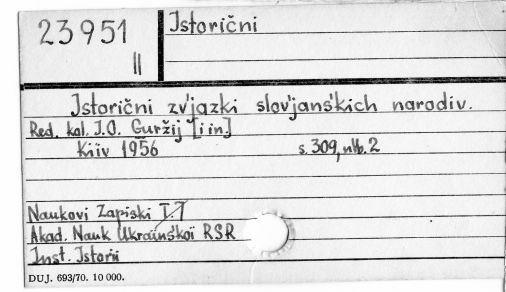 23951
II
Istorični
Istorični zv'jazki slov'janśkich narodiv.
Red. kol. I.O. Guržij [i in.]
Kiïv 1956 s. 309, nlb. 2
Naukovi Zapiski T. 7
Akad. Nauk Ukraïnśkoï RSR
Inst. Istoriï
DUJ. 693/70. 10 000.